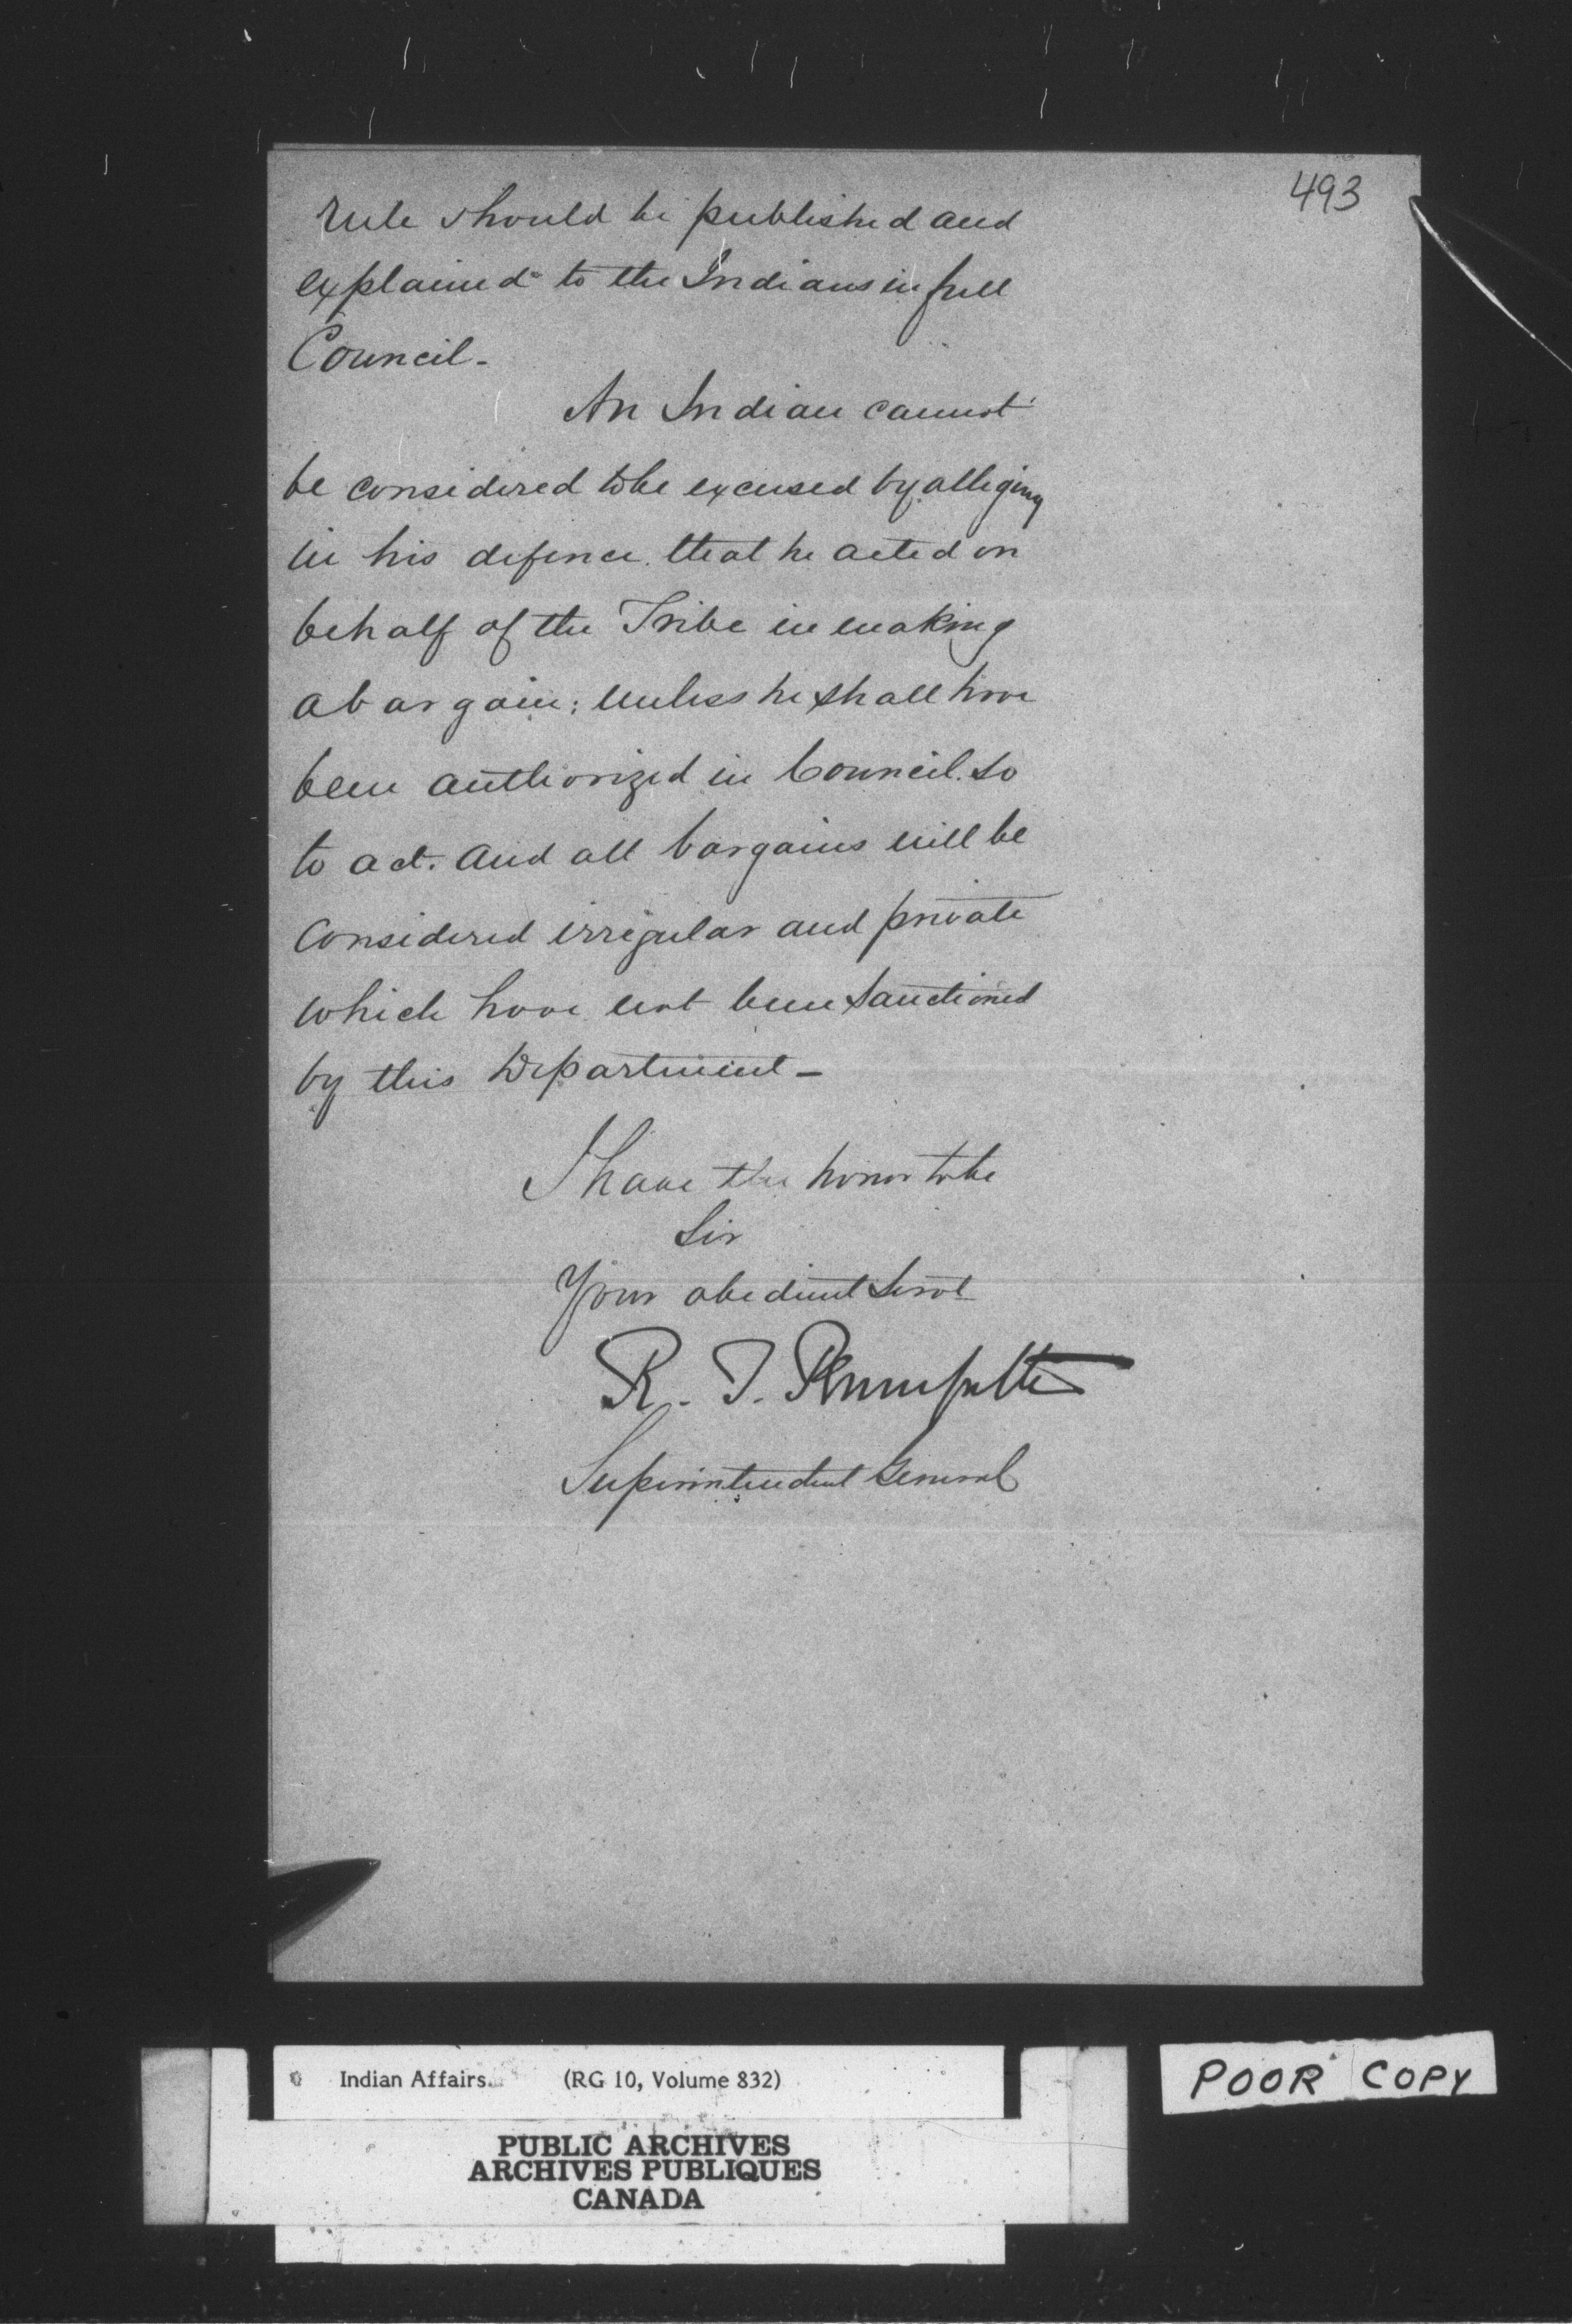 493
rule should be published and
explained to the Indians in full
Council -
An Indian cannot
be considered to be excused by alleging
in his defence that he acted on
behalf of the Tribe in making
a bargain; unless he shall have
been authorized in Council so
to act. And all bargains will be
considered irregular and private
which have not been sanctioned
by this Department -
I have the honor to be
Sir
Your obedient Servt
R. T. Pennefather
Superintendent General
Indian Affairs. (RG 10, Volume 832)
PUBLIC ARCHIVES
ARCHIVES PUBLIQUES
CANADA
POOR COPY